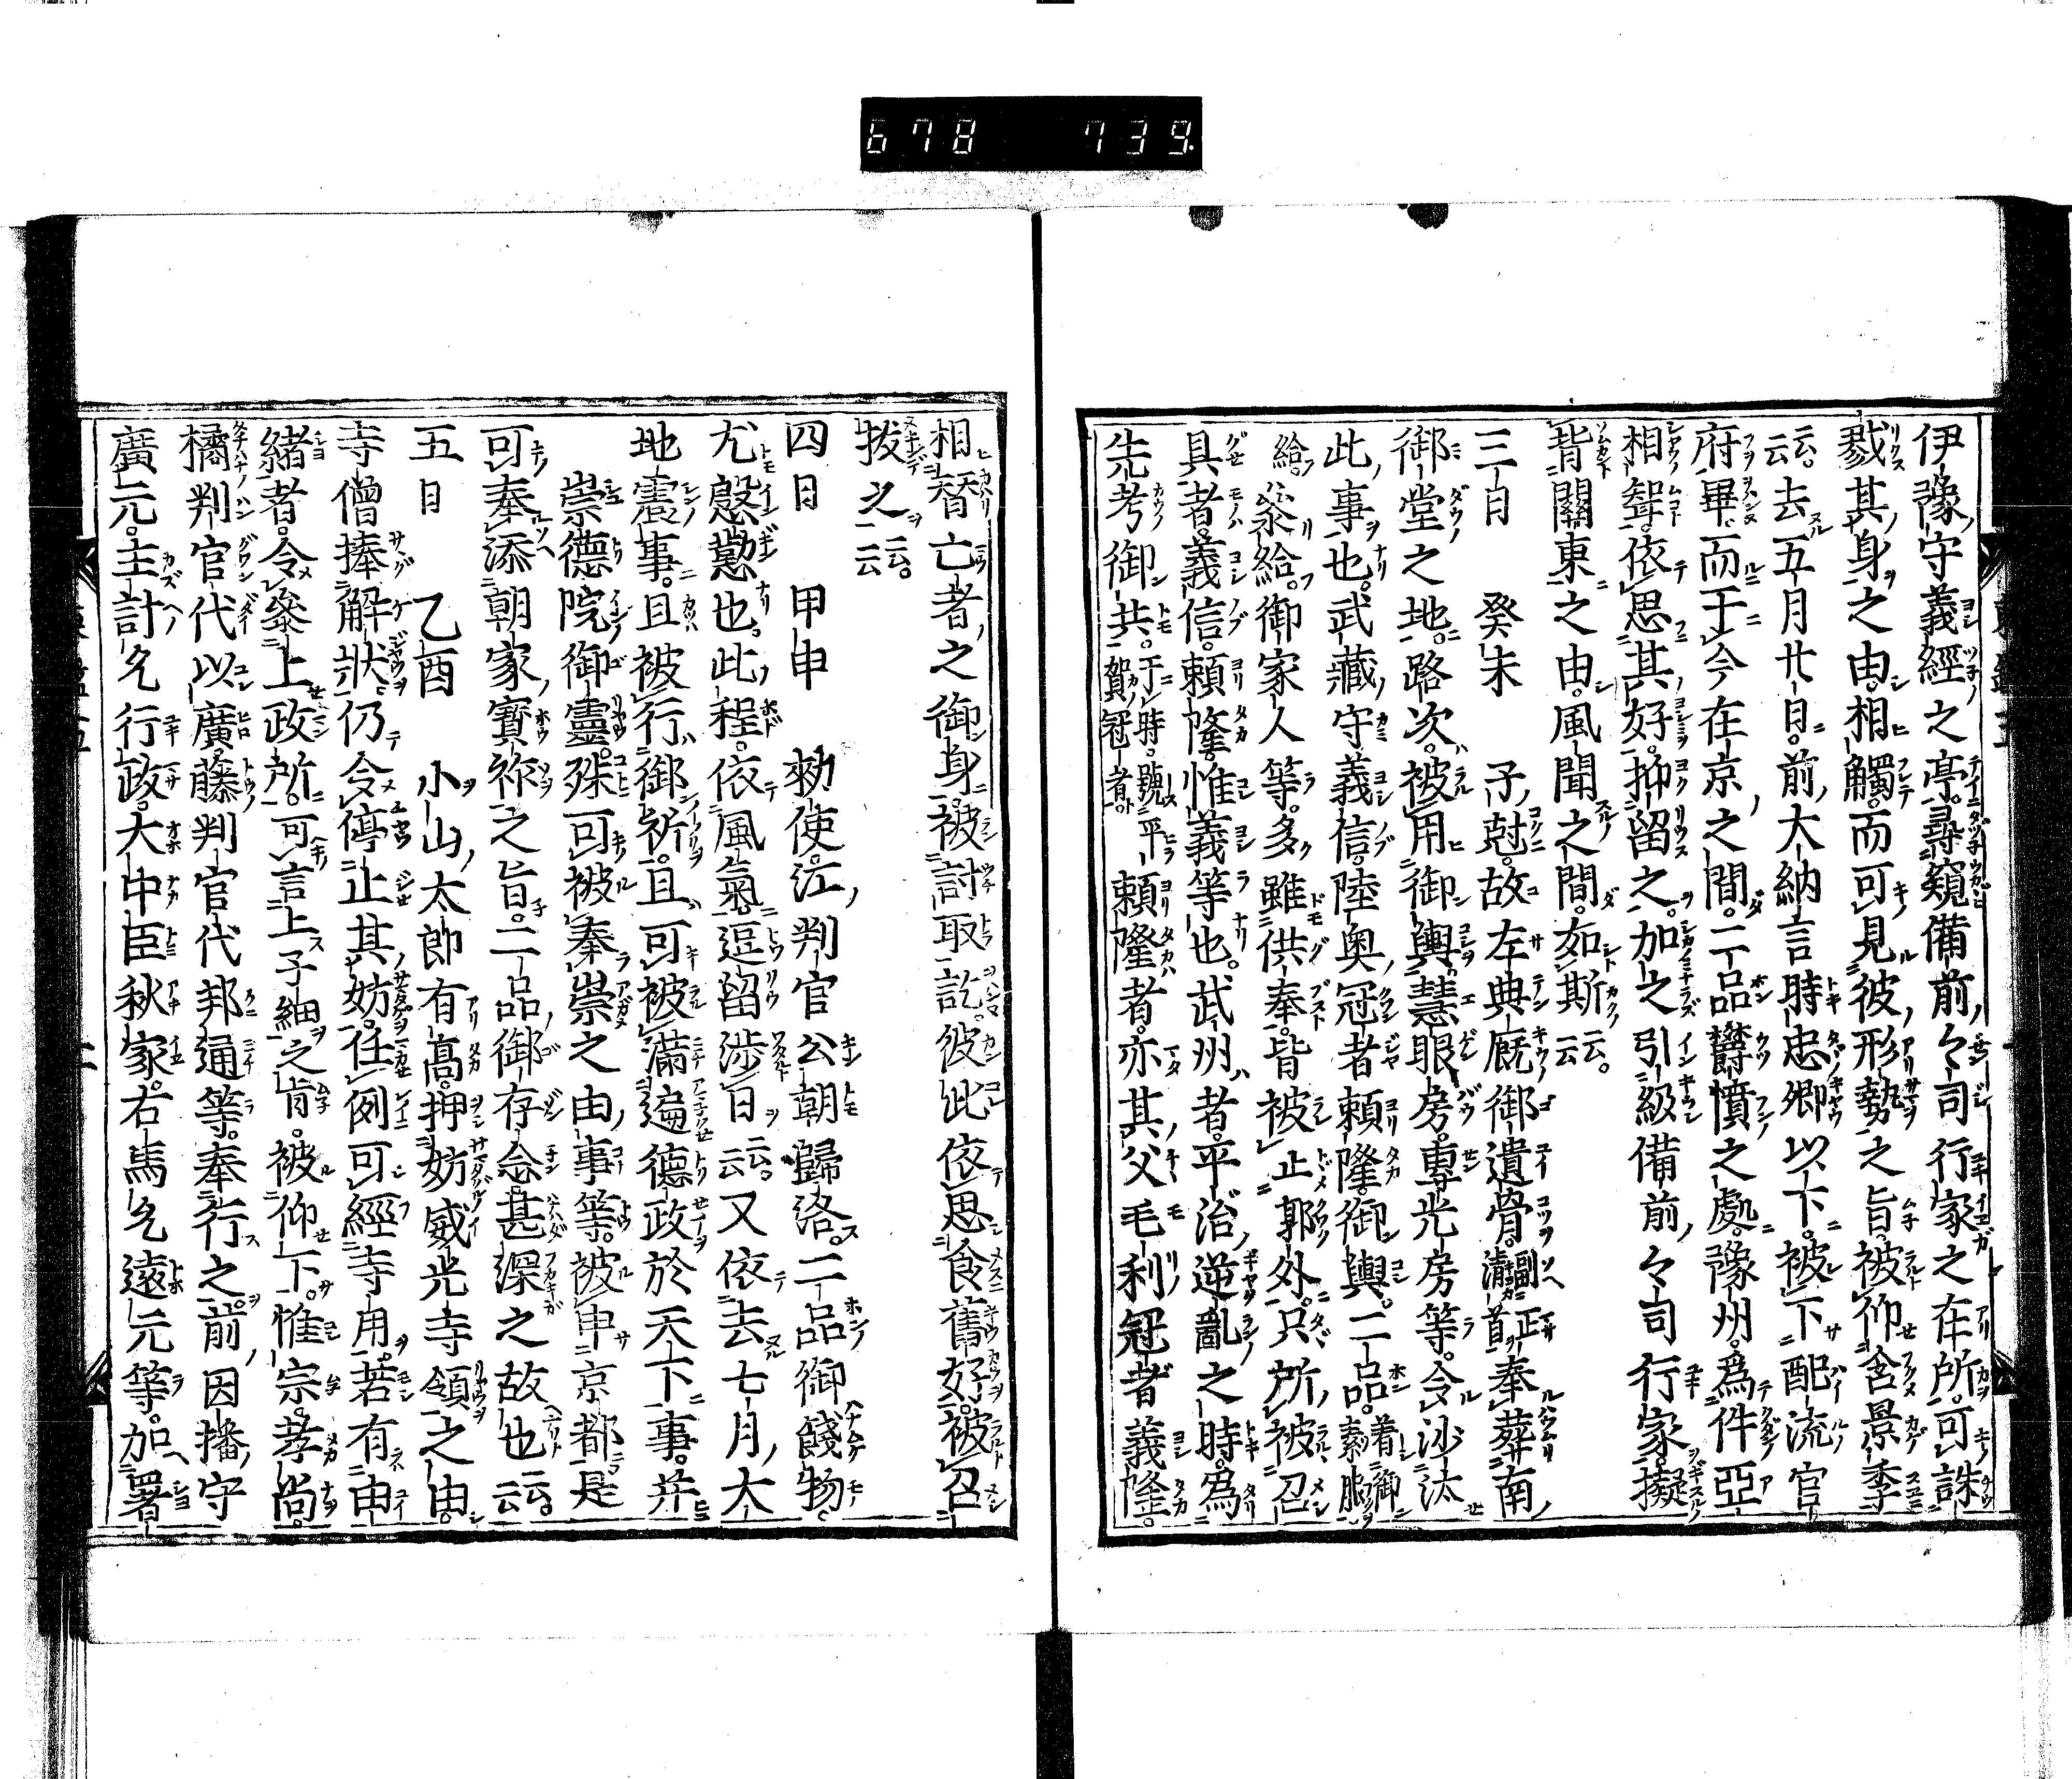 678 739.
伊豫守義經之亭。尋窺備前々司行家之在所。可誅
戮其身之由。相觸。而可見彼形勢之旨。被仰含景季
云云。去五月廿日。前大納言時忠卿以下。被下配流官
府畢。而于今在京之間。二品欝憤之處。豫州。爲件亞
相聟。依思其好。抑留之。加之引級備前々司行家。擬
背關東之由。風聞之間。如斯云云。
三日 癸未 子尅。故左典厩御遺骨。副正淸首奉葬南
御堂之地。路次。被用御輿。慧眼房。專光房等。令沙汰
此事也。武藏守義信。陸奥冠者賴隆。御輿。二品。着御素服
給。叅給。御家人等。多雖供奉。皆被止郭外。只所被召
具者。義信。賴隆。惟義等也。武州者。平治逆亂之時。爲
先考御共。于時。號平賀冠者。賴隆者。亦其父毛利冠者義隆。
相替亡者之御身被討取訖。彼此依思食舊好。被召
拔之云云。
四日 甲申 勑使江判官公朝歸洛。二品御餞物。
尤慇懃也。此程。依風氣。逗留渉日云云。又依去七月大
地震事。且被行御祈。且可被滿遍德政於天下事。并
崇德院御靈。殊可被奉崇之由事等。被申京都。是
可奉添朝家寳祚之旨。二品御存念甚深之故也云云。
五日 乙酉 小山太郎有髙。押妨威光寺領之由。
寺僧捧解狀。仍令停止其妨。任例可經寺用。若有由
緒者。令叅上政所。可言上子細之旨。被仰下。惟宗孝尚。
橘判官代以廣。藤判官代邦通等。奉行之。前因播守
廣元。主計允行政。大中臣秋家。右馬允遠元等。加署